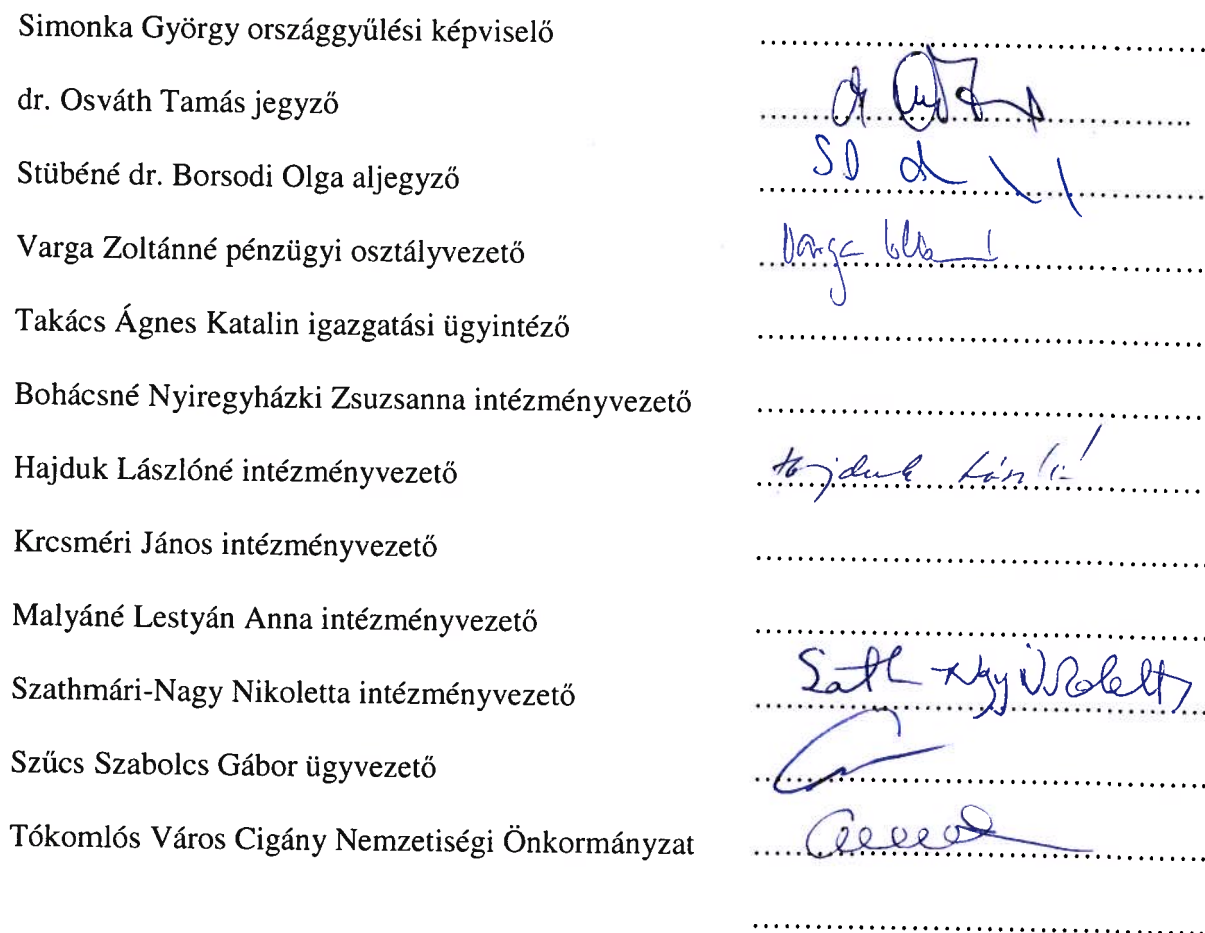 Simonka György országgyűlési képviselő
dr. Osváth Tamás jegyző
dr
Stübéné dr. Borsodi Olga aljegyző
Varga Zoltánné pénzügyi osztályvezető
Varga
Takács Ágnes Katalin igazgatási ügyintéző
Bohácsné Nyiregyházki Zsuzsanna intézményvezető
Hajduk Lászlóné intézményvezető
Hajduk
Krcsméri János intézményvezető
Malyáné Lestyán Anna intézményvezető
Szathmári-Nagy Nikoletta intézményvezető
Nagy Nikoletta
Szűcs Szabolcs Gábor ügyvezető
Tókomlós Város Cigány Nemzetiségi Önkormányzat